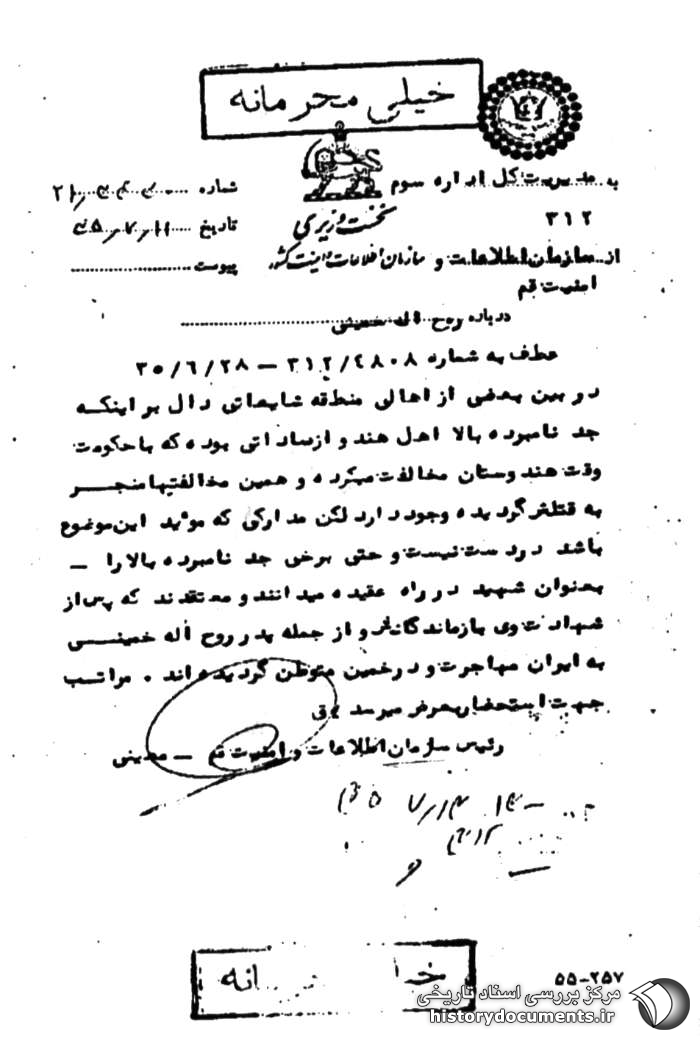 خیلی محرمانه
به مدیریت کل اداره سوم
۳۱۲
شماره
تاریخ
پیوست
نخست وزیری
سازمان اطلاعات و امنیت کشور
از سازمان اطلاعات و
امنیت قم
درباره روح اله خمینی
عطف به شماره ۳۱۲/۴۸۰۸ – ۳۵/۶/۲۸
در بین بعضی از اهالی منطقه شایعاتی دال بر اینکه
جد نامبرده بالا اهل هند و از ساداتی بوده که با حکومت
وقت هندوستان مخالفت میکرده و همین مخالفتها منجر
به قتلش گردیده وجود دارد لکن مدارکی که موئید این موضوع
باشد در دست نیست و حتی برخی جد نامبرده بالا را –
بعنوان شهید در راه عقیده میدانند و معتقدند که پس از
شهادت وی بازماندگانش و از جمله پدر روح اله خمینی
به ایران مهاجرت و در خمین متوطن گردیده اند . مراتب
جهت استحضار بعرض میرسد
رئیس سازمان اطلاعات و امنیت قم – معینی
۵۵-۲۵۷
مرکز بررسی اسناد تاریخی
historydocuments.ir